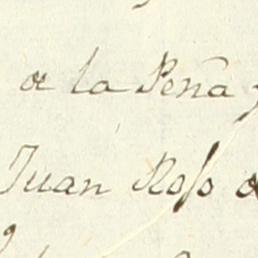 de la Peña y
Juan Roso de